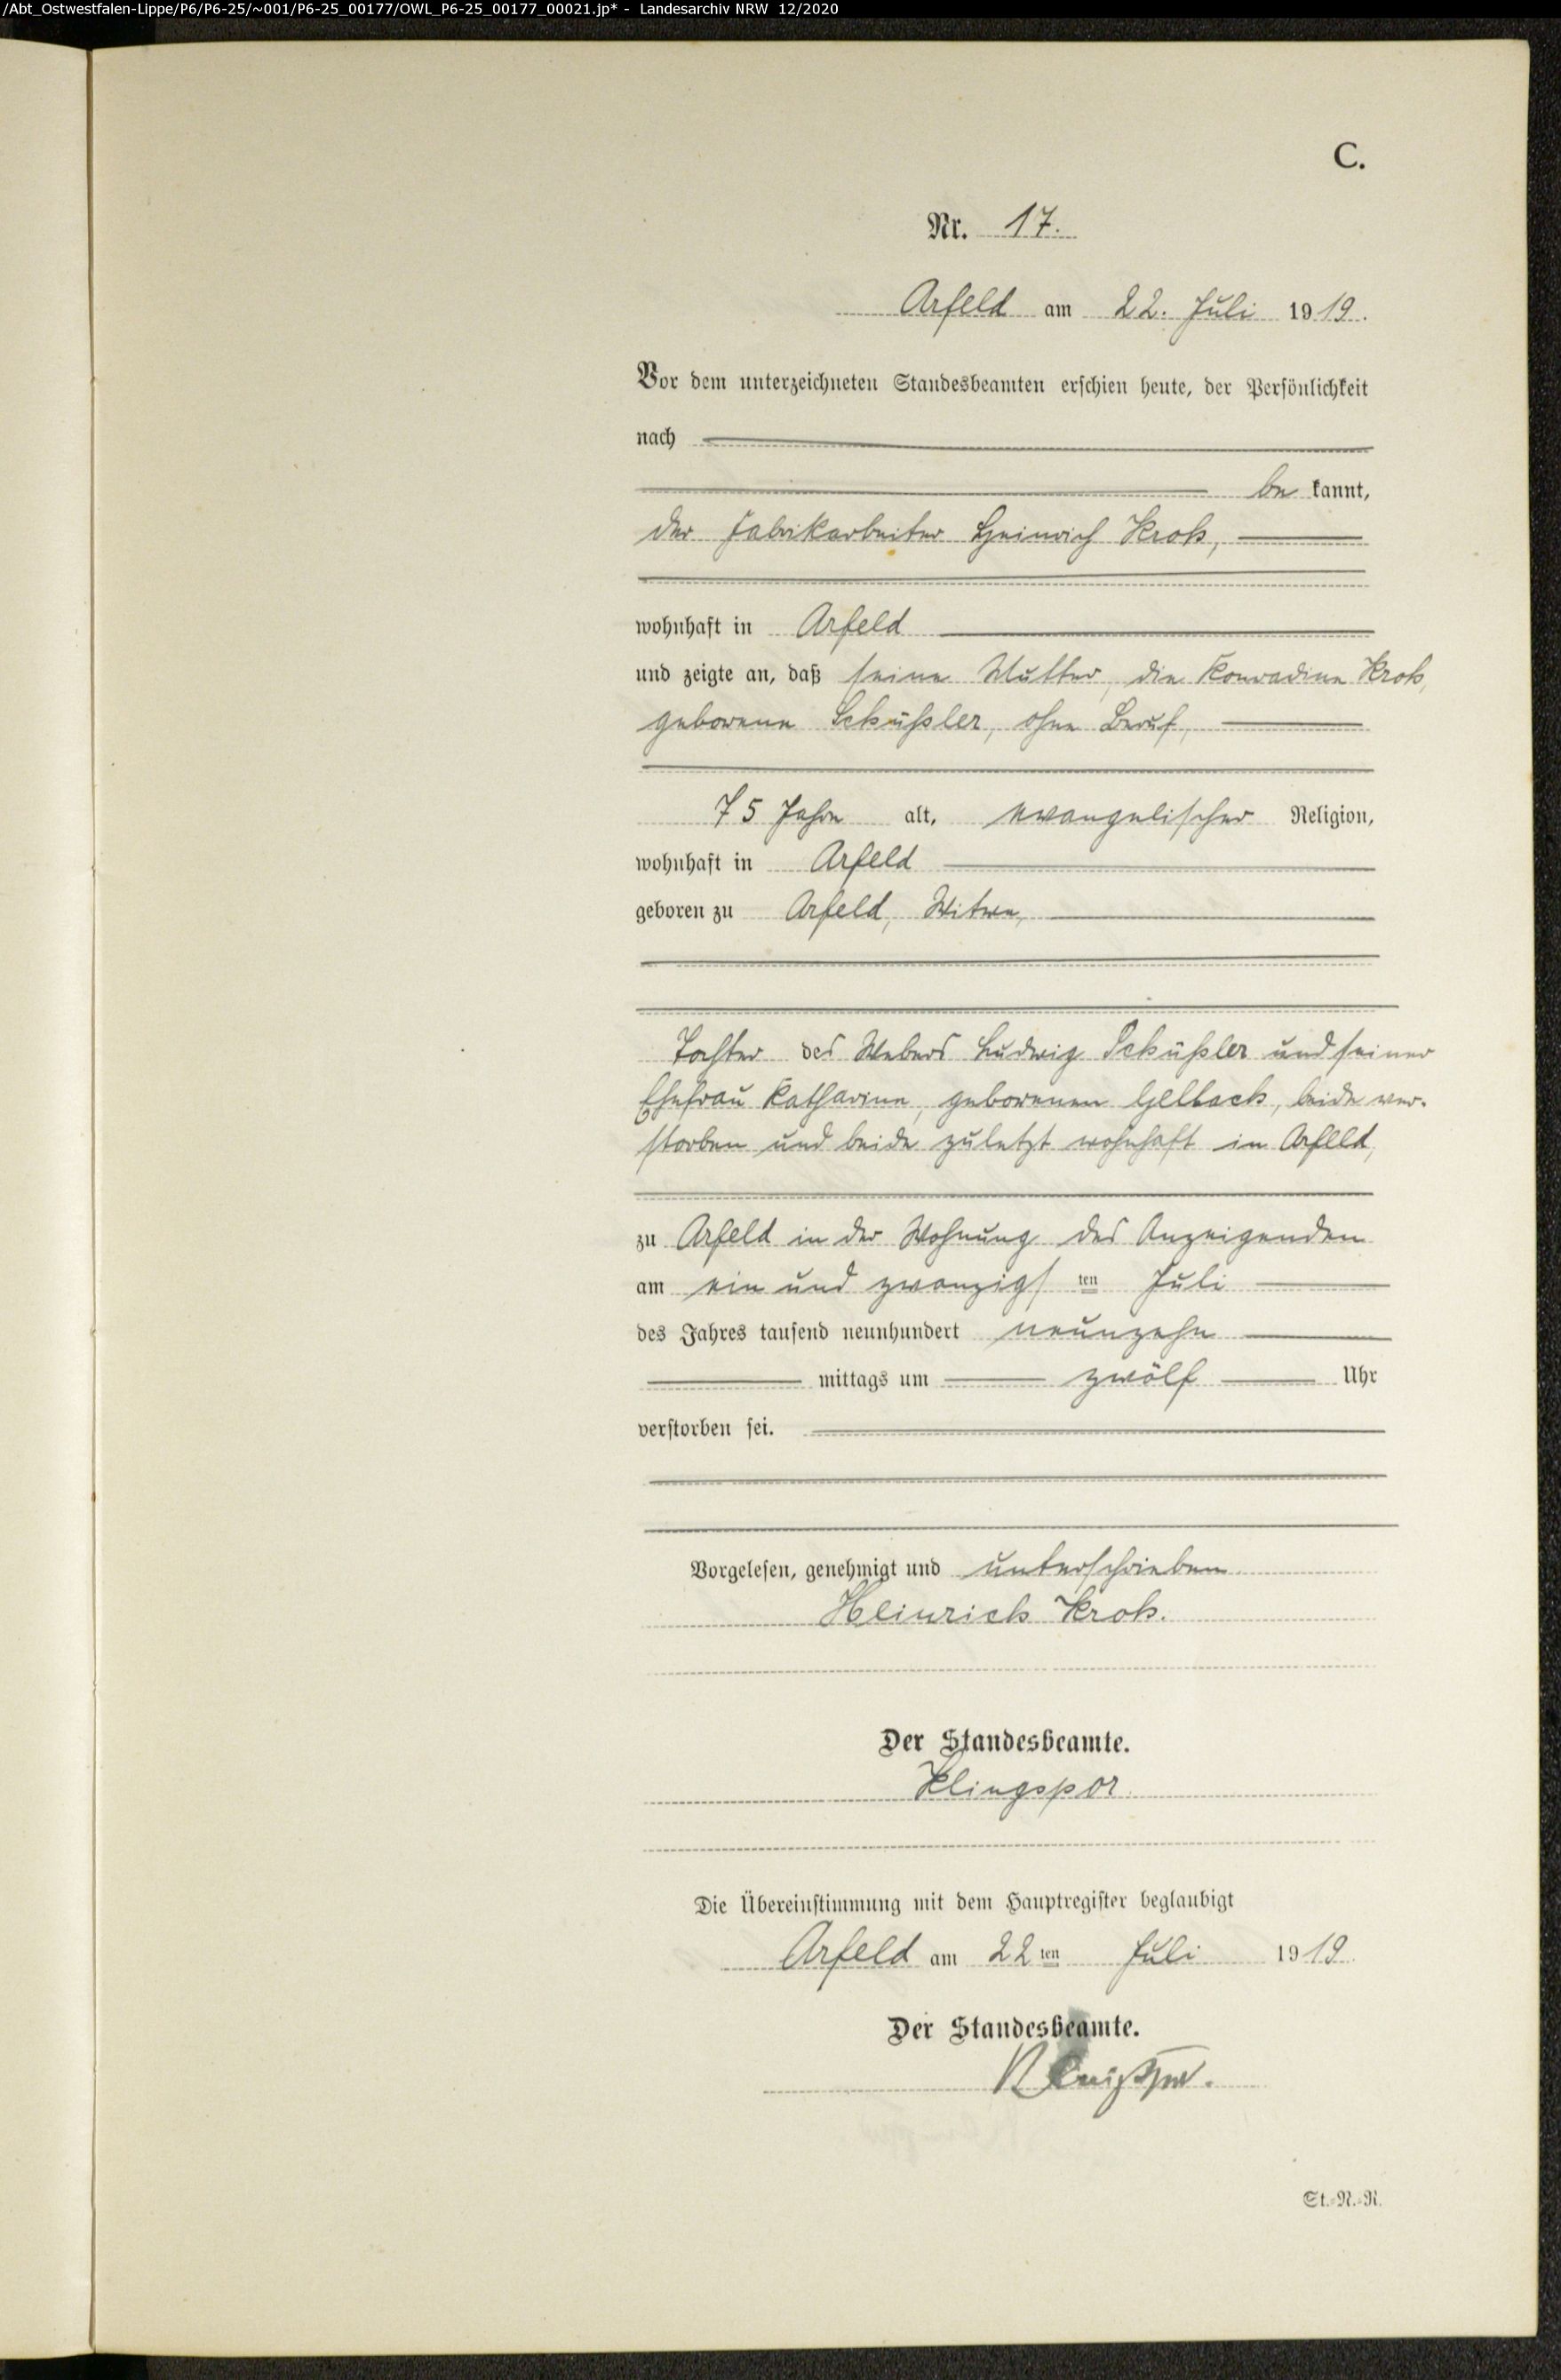 /Abt_Ostwestfalen-Lippe/P6/P6-25/~001/P6-25_00177/OWL_P6-25_00177_00021.jp* - Landesarchiv NRW 12/2020
C.
Nr. 17.
Arfeld am 22. Juli 1919.
Vor dem unterzeichneten Standesbeamten erschien heute, der Persönlichkeit
nach
be kannt,
der Fabrikarbeiter Heinrich Kroh,
wohnhaft in Arfeld
und zeigte an, daß seine Mutter, die Konradine Kroh,
geborene Schüßler, ohne Beruf,
75 Jahre alt, evangelischer Religion,
wohnhaft in Arfeld
geboren zu Arfeld, Witwe,
Tochter des Webers Ludwig Schüßler und seiner
Ehefrau Katharine, geborenen Gelbach, beide ver-
storben und beide zuletzt wohnhaft in Arfeld,
zu Arfeld in der Wohnung des Anzeigenden
am ein und zwanzigsten Juli
des Jahres tausend neunhundert neunzehn
mittags um zwölf Uhr
verstorben sei.
Vorgelesen, genehmigt und unterschrieben
Heinrich Kroh.
Der Standesbeamte.
Klingspor
Die Übereinstimmung mit dem Hauptregister beglaubigt
Arfeld am 22ten Juli 1919
Der Standesbeamte.
Klingspor.
St.-N.-R.